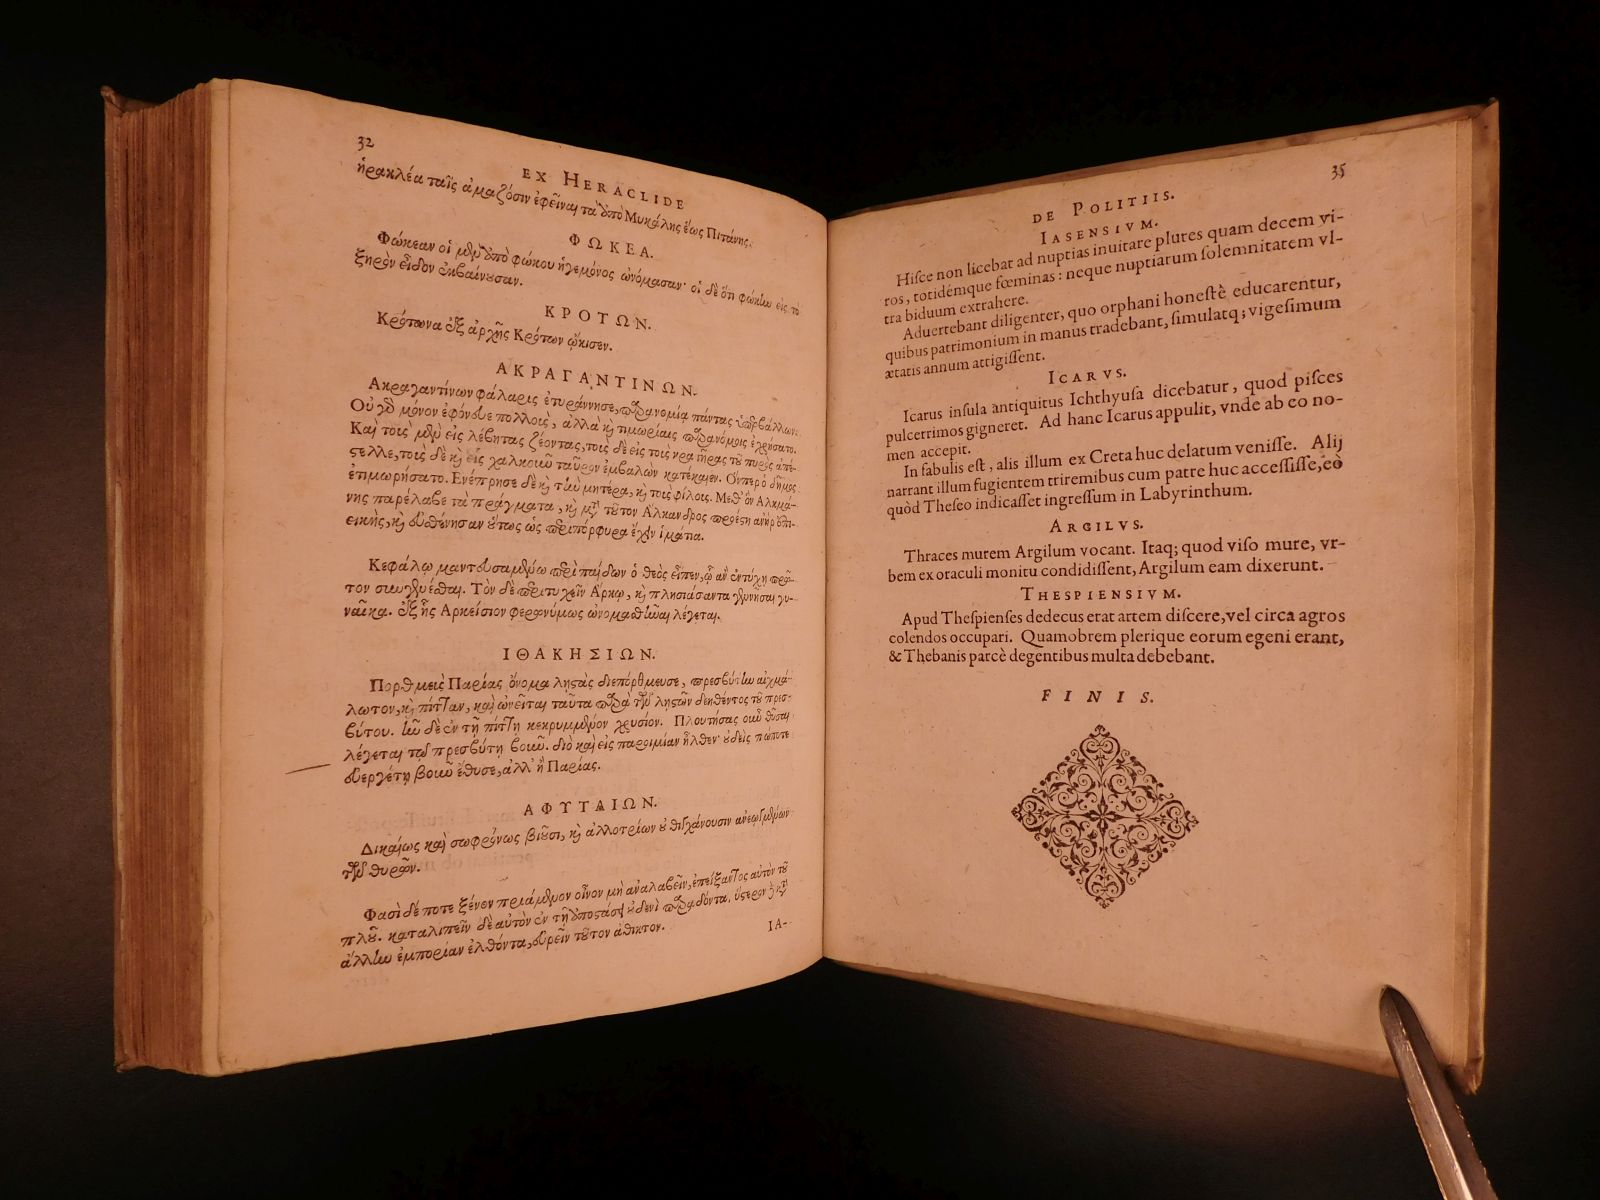 32
EX HERACLIDE
ἡρακλέα ταῖς ἀμαζόσιν ἐφεῖναι τὰ ἀπὸ Μυκάλης ἕως Πιτάνης.
ΦΩΚΕΑ.
Φώκεαν οἱ μὲν ἀπὸ φώκου ἡγεμόνος ὠνόμασαν· οἱ δὲ ὅτι φώκην εἰς τὸ
ξηρὸν εἶδον ἐκβαίνουσαν.
ΚΡΟΤΩΝ.
Κρότωνα ἐξ ἀρχῆς Κρότων ᾤκισεν.
ΑΚΡΑΓΑΝΤΙΝΩΝ.
Ακραγαντίνων φάλαρις ἐτυράννησε, παρανομίᾳ πάντας ὑπερβάλλων.
Οὐ γὰρ μόνον ἐφόνευε πολλοὺς, ἀλλὰ καὶ τιμωρίαις παρανόμοις ἐχρήσατο.
Καὶ τοὺς μὲν εἰς λέβητας ζέοντας, τοὺς δὲ εἰς τοὺς κρατῆρας τοῦ πυρὸς ἀπέ-
στελλε, τοὺς δὲ καὶ εἰς χαλκοῦν ταῦρον ἐμβαλὼν κατέκαιεν. Ὅνπερ ὁ δῆμος
ἐτιμωρήσατο. Ενέπρησε δὲ καὶ τὴν μητέρα, καὶ τοὺς φίλους. Μεθ' ὃν Αλκμά-
νης παρέλαβε τὰ πράγματα, καὶ μετὰ τοῦτον Αλκανδρος προέστη ἀνὴρ ἐπι-
εικὴς, καὶ εὐθένησαν οὕτως ὡς περιπόρφυρα ἔχειν ἱμάτια.
Κεφάλῳ μαντευσαμένῳ περὶ παίδων ὁ θεὸς εἶπεν, ᾧ ἂν ἐντύχῃ πρῶ-
τον συγγενέσθαι. Τὸν δὲ περιτυχεῖν Αρκῳ, καὶ πλησιάσαντα γεννῆσαι γυ-
ναῖκα. ἐξ ἧς Αρκείσιον φερωνύμως ὠνομασθῆναι λέγεται.
ΙΘΑΚΗΣΙΩΝ.
Πορθμεὺς Παρίας ὄνομα λῃστὰς διεπόρθμευσε, πρεσβύτην αἰχμά-
λωτον, καὶ πίτταν, καὶ ὠνεῖται ταῦτα παρὰ τῶν λῃστῶν δεηθέντος τοῦ πρεσ-
βύτου. ἦν δὲ ἐν τῇ πίττῃ κεκρυμμένον χρυσίον. Πλουτήσας οὖν θῦσαι
λέγεται τῷ πρεσβύτῃ βοῦν. διὸ καὶ εἰς παροιμίαν ἦλθεν· οὐδεὶς πώποτε
εὐεργέτῃ βοῦν ἔθυσε, ἀλλ' ἢ Παρίας.
ΑΦΥΤΑΙΩΝ.
Δικαίως καὶ σωφρόνως βιοῦσι, καὶ ἀλλοτρίων οὐ θιγγάνουσιν ἀνεῳγμένων
τῶν θυρῶν.
Φασὶ δέ ποτε ξένον πριάμενον οἶνον μὴ ἀναλαβεῖν, ἐπείξαντος αὐτὸν τοῦ
πλοῦ. καταλιπεῖν δὲ αὐτὸν ἐν τῇ ὑποστάσει οὐδενὶ παραδόντα, ὕστερον καὶ κατ'
ἄλλην ἐμπορίαν ἐλθόντα, εὑρεῖν τοῦτον ἄθικτον.
ΙΑ-
35
DE POLITIIS.
IASENSIVM.
Hisce non licebat ad nuptias inuitare plures quam decem vi-
ros, totidémque fœminas: neque nuptiarum solemnitatem vl-
tra biduum extrahere.
Aduertebant diligenter, quo orphani honestè educarentur,
quibus patrimonium in manus tradebant, simulatq; vigesimum
ætatis annum attigissent.
ICARVS.
Icarus insula antiquitus Ichthyusa dicebatur, quod pisces
pulcerrimos gigneret. Ad hanc Icarus appulit, vnde ab eo no-
men accepit.
In fabulis est, alis illum ex Creta huc delatum venisse. Alij
narrant illum fugientem triremibus cum patre huc accessisse, eò
quòd Theseo indicasset ingressum in Labyrinthum.
ARGILVS.
Thraces murem Argilum vocant. Itaq; quod viso mure, vr-
bem ex oraculi monitu condidissent, Argilum eam dixerunt.
THESPIENSIVM.
Apud Thespienses dedecus erat artem discere, vel circa agros
colendos occupari. Quamobrem plerique eorum egeni erant,
& Thebanis parcè degentibus multa debebant.
FINIS.